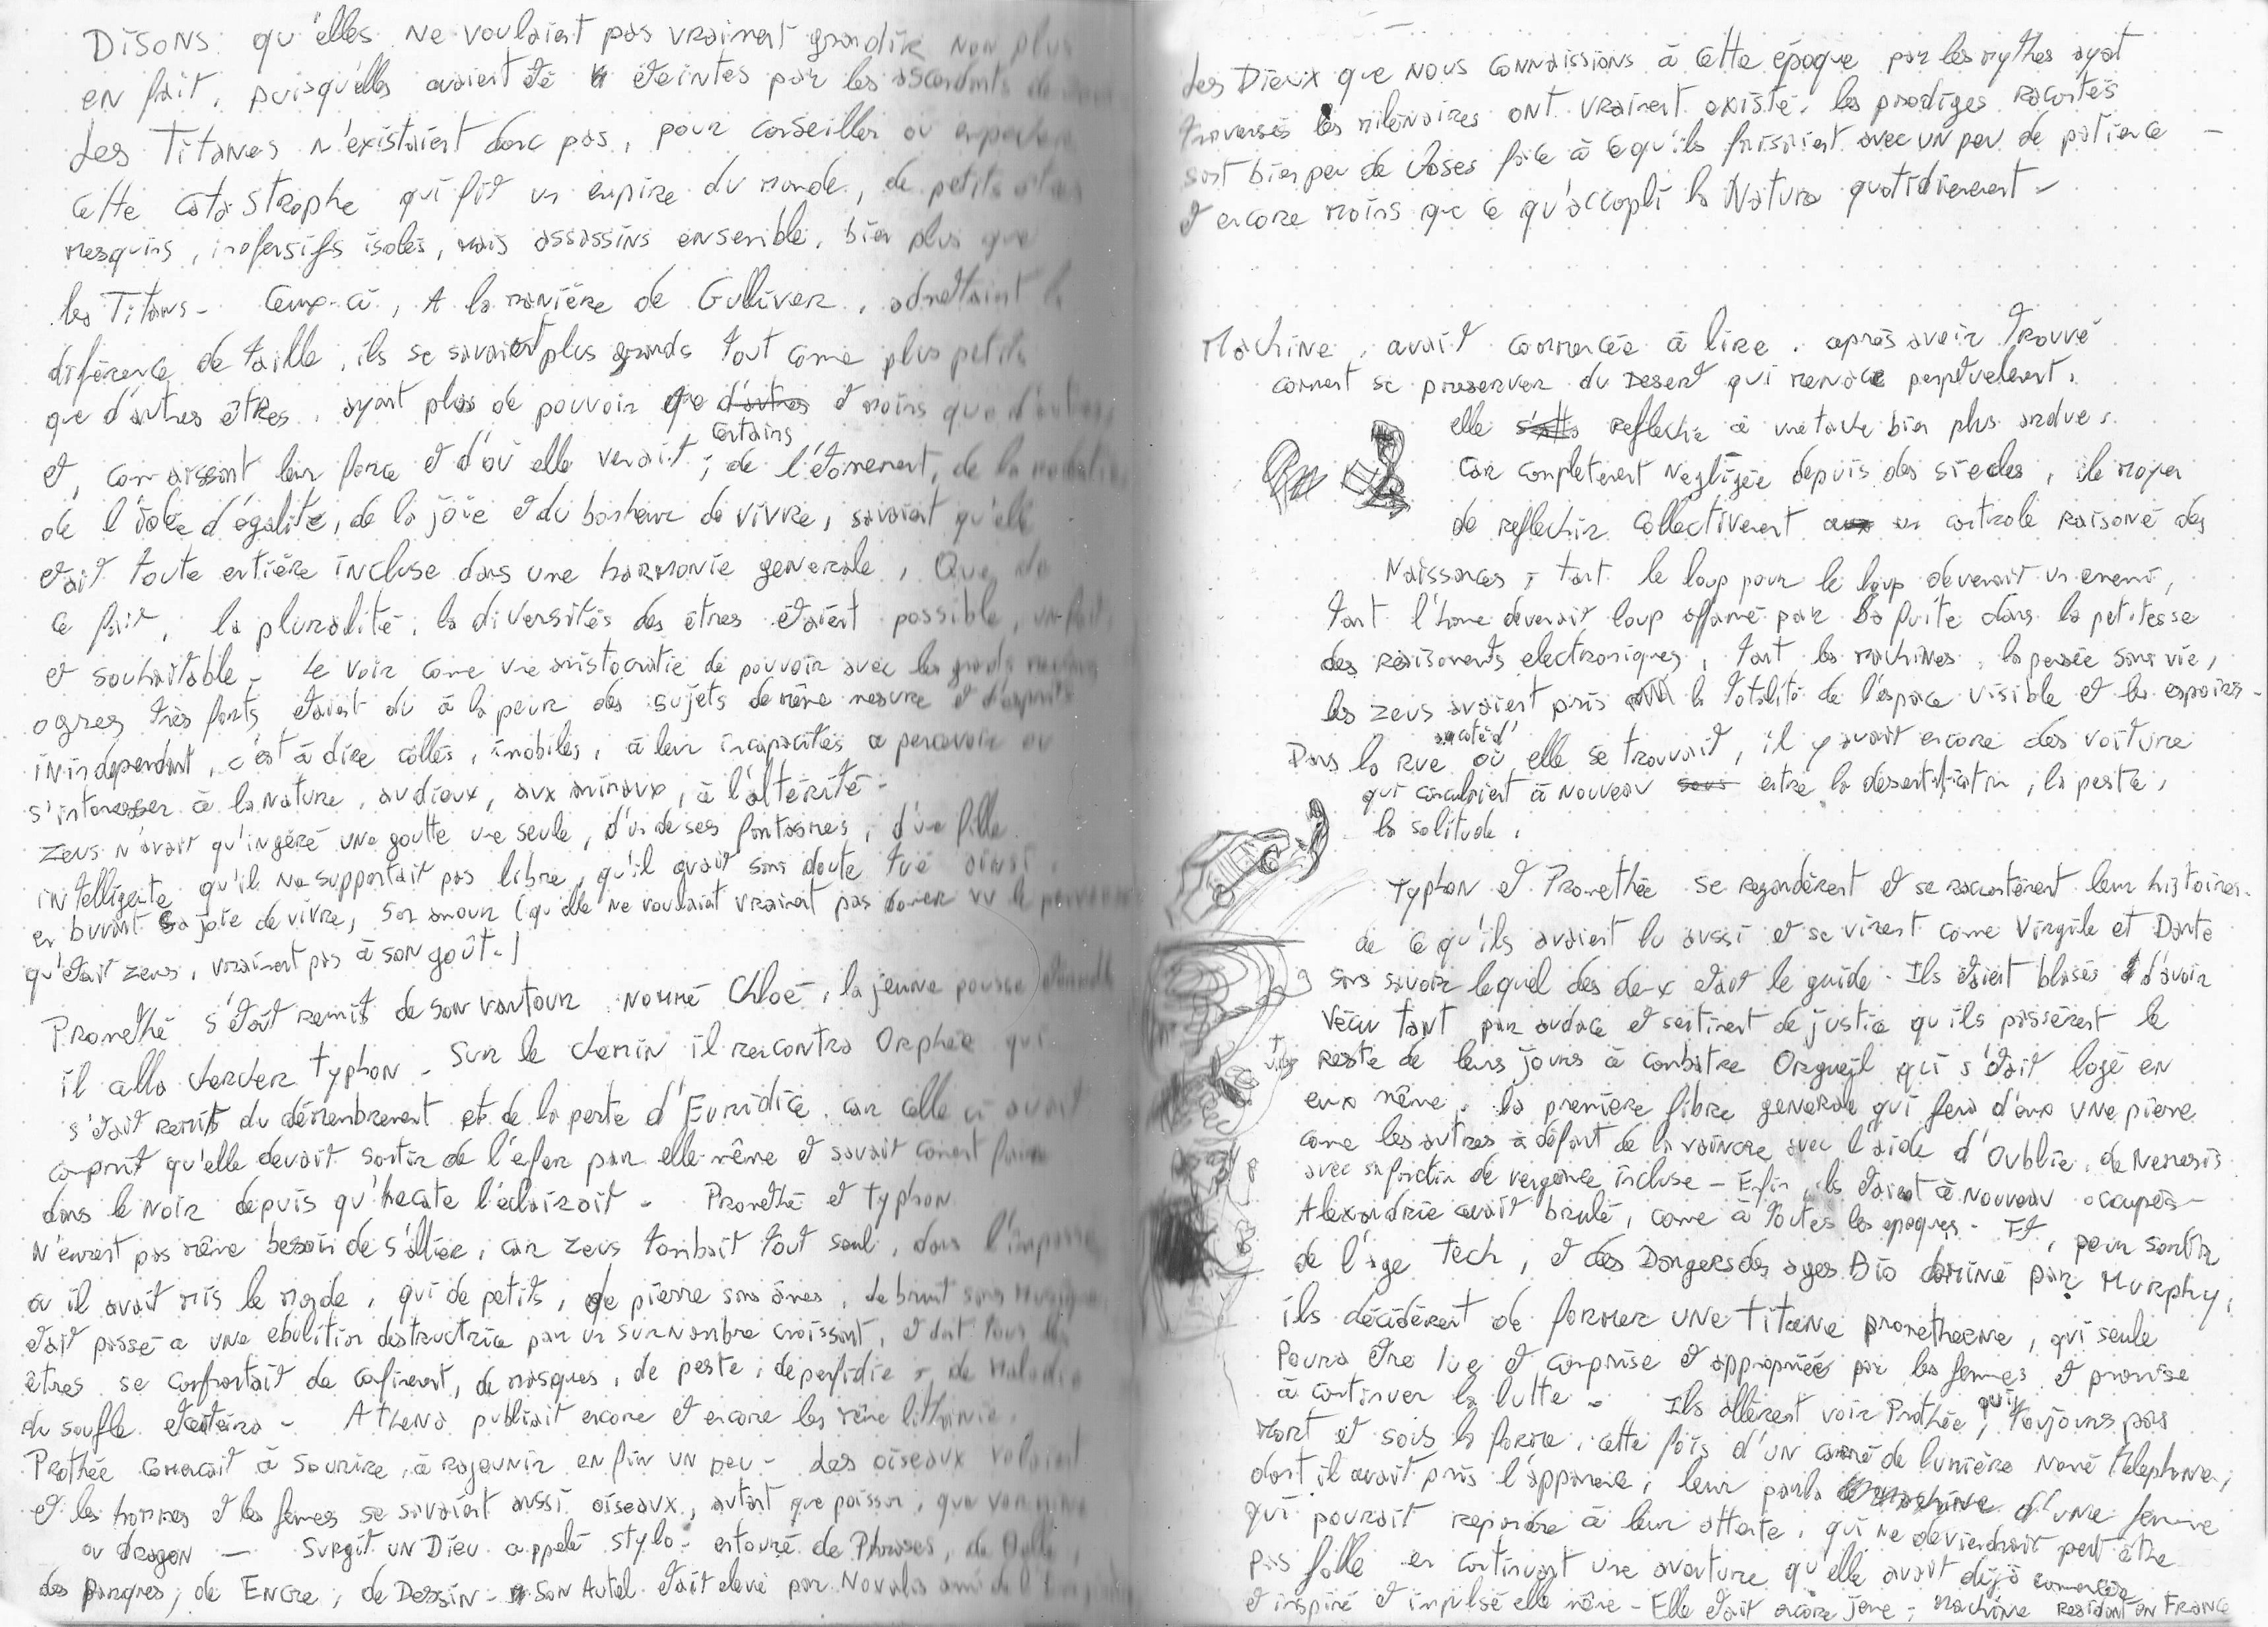 DISONS qu'elles ne voulaient pas vraiment grandir non plus
en fait, puisqu'elles avaient été éteintes par les ascendants de
Les Titanes n'existaient donc pas, pour conseiller ou empecher
cette catastrophe qui fit un empire du monde, de petits êtres
mesquins, inofensifs isolés, mais assassins ensemble, bien plus que
les Titans - Ceux-ci, A la manière de Gulliver, admettaient la
diférence de taille, ils se savaient plus grands tout come plus petits
que d'autres êtres, ayant plus de pouvoir que d'autres et moins que d'autres
certains
et, connaissant leur force et d'où elle venait ; de l'étonnement, de la
de l'idée d'égalité, de la joie et du bonheur de vivre, savaient qu'elle
était toute entière incluse dans une harmonie generale, Que de
ce fait, la pluralité, la diversités des êtres étaient possible, un fait,
et souhaitable - Le voir come une aristocratie de pouvoir avec les grands
ogres très forts était du à la peur des sujets de même mesure et d'esprits
inindependant, c'est à dire collés, imobiles, à leur incapacités a percevoir ou
s'interesser à la nature, au dieux, aux animaux, à l'altérité -
Zeus n'avait qu'ingéré une goutte une seule, d'un de ses fantasmes, d'une fille
intelligente qu'il ne supportait pas libre, qu'il avait sans doute tué ainsi,
en buvant sa joie de vivre, son amour (qu'elle ne voulait vraiment pas doner vu le
qu'était zeus, vraiment pas à son goût.)
Promethé s'était remit de son vautour nommé Chloé, la jeune pousse
il alla chercher typhon - Sur le chemin il rencontra Orphée qui
s'était remit du démembrement et de la perte d'Euridice, car celle ci avait
comprit qu'elle devait sortir de l'enfer par elle-même et savait coment faire
dans le noir depuis qu'hecate l'éclairait - Promethé et typhon
N'eurent pas même besoin de s'allier, car zeus tombait tout seul, dans l'impasse
ou il avait mis le monde, qui de petits, de pierre sans âmes, de bruit sans musique,
était passé a une ebulition destructrice par un surnombre croissant, et dont tous les
êtres se confrontait de confinement, de masques, de peste, de perfidie, de Maladie
du soufle etcétéra - Athena publiait encore et encore les même
Prothée comencait à sourire, à rajeunir enfin un peu - des oiseaux volaient
et les hommes et les femmes se savaient aussi oiseaux, autant que poisson, que
ou dragon - Surgit un Dieu appelé stylo - entouré de Phrases, de
des parques, de Encre, de Dessin - Son Autel était elevé par Novalis ami de
des Dieux que nous connaissions à cette époque par les mythes ayant
traversés les milénaires ont vraiment existé, les prodiges racontés
sont bien peu de choses face à ce qu'ils faisaient avec un peu de patience -
et encore moins que ce qu'accopli la Nature quotidienement -
Machine, avait commencée à lire, après avoir trouvé
coment se preserver du Desert qui menace perpétuelement,
elle reflechie à une tache bien plus ardue,
car completement negligée depuis des siecles, le moyen
de reflechir collectivement un controle raisoné des
Naissances, tant le loup pour le loup devenait un enemi,
tant l'home devenait loup affamé par la fuite dans la petitesse
des raisonements electroniques, tant les machines, la pensée sans vie,
les zeus avaient pris la totalité de l'espace visible et les espoirs -
Dans la rue à coté d'où elle se trouvait, il y avait encore des voiture
qui circulaient à nouveau sous entre la désertification, la peste,
la solitude.
Typhon et Promethée se regardèrent et se racontèrent leur histoires
de ce qu'ils avaient lu aussi et se virent come Virgile et Dante
sans savoir lequel des deux était le guide - Ils étaient blasés d'avoir
vécu tant par audace et sentiment de justice qu'ils passèrent le
reste de leurs jours à combatre Orgueil qui s'était logé en
eux même, la premiere fibre generale qui fera d'eux une pierre
come les autres à défaut de la vaincre avec l'aide d'Oublie, de Nemesis
avec sa fonction de vengeance incluse - Enfin, ils étaient à nouveau occupés -
Alexandrie avait brulé, come à toutes les epoques - Et, pour sortir
de l'age tech, et des Dangers des ages Bio dominé par Murphy,
ils décidèrent de former une titane prometheene, qui seule
Poura être lue et comprise et appropriée par les femmes et promise
à continuer la lutte - Ils allèrent voir Prothée, qui toujours pas
mort et sous la forme, cette fois d'un carré de lumière nomé telephone,
dont il avait pris l'apparence, leur parla d'une femme
qui pourait repondre à leur attente, qui ne deviendrait peut être
pas folle en continuant une aventure qu'elle avait déjà comencée
et inspiré et impulsé elle même - Elle était encore jeune ; Machine résidant en France